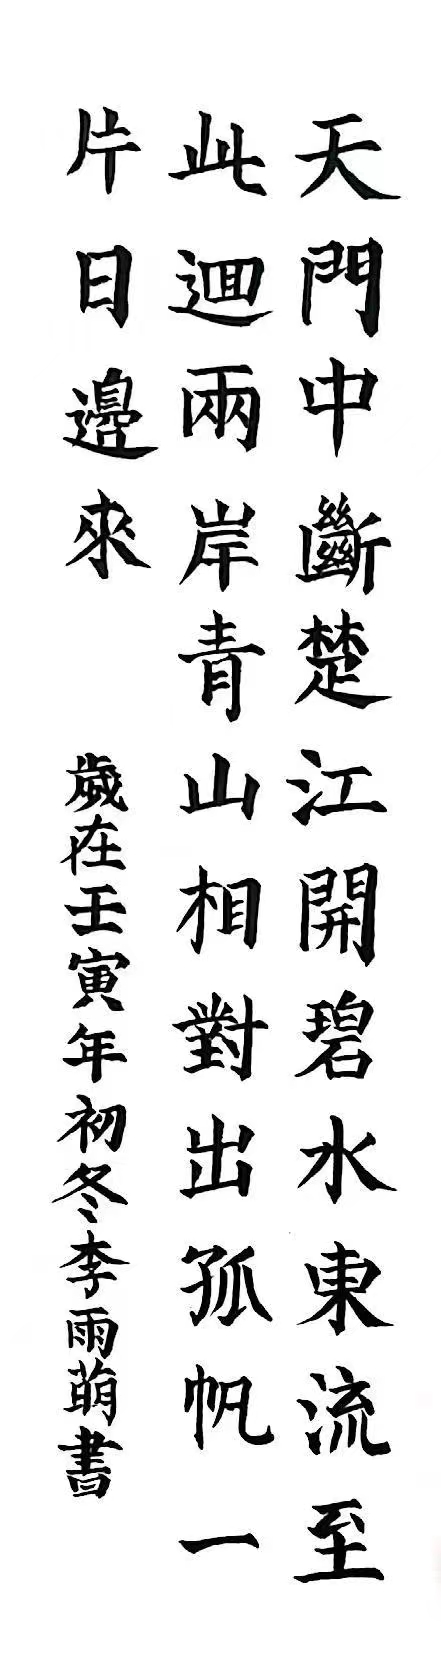 天門中斷楚江開碧水東流至
此迴兩岸青山相對出孤帆一
片日邊來
歲在壬寅年初冬李雨萌書